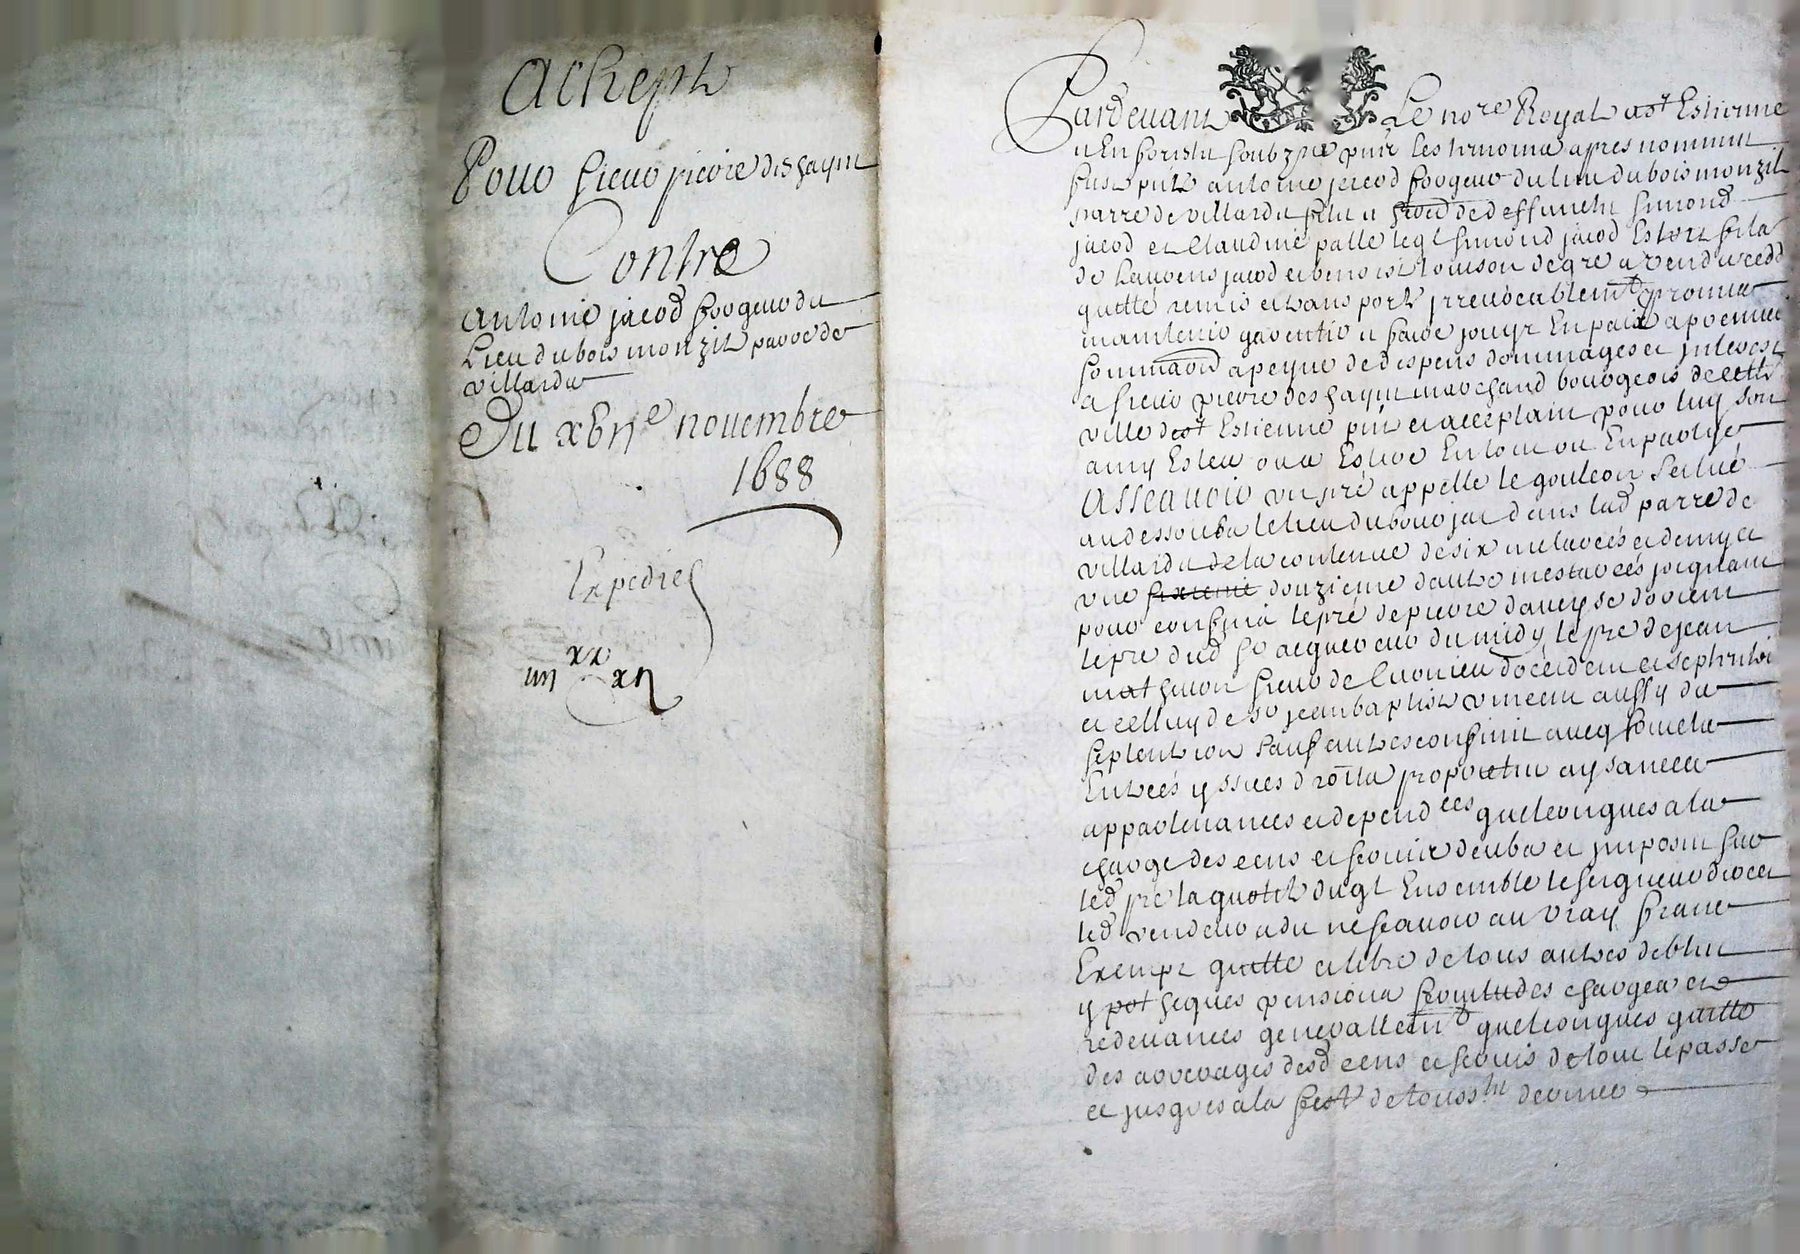 Achept
Pour sieur pierre deschaynt
Contre
Antoine jacod forgeur du
Lieu du bois monzil parre de
villardz
Du xbııe novembre
1688
Expedie
xx
ıııı xıı
Pardevant Le nore Royal a st Estienne
en forestz soubzne pnt les tesmoins apres nommez
fust pnt antoine jacod forgeur du lieu du bois monzil
parre de villardz filz a feud de deffunctz simond
jacod et claudine palle leql simond jacod estoit filz
de Laurens jacod et benoiste de gre a vend cedde
quitte remis et transporte jrrevocablemt promis
maintenir garentir et faire jouyr En paix a
a peyne de despens dommages et jnterestz
a sieur pierre deschaynt marchand bourgeois de cette
ville de st Estienne pnt et acceptant pour luy son
amy Esleu ou a Eslire En tout ou En partye
Asscavoir un pré appelle le gouteon scitué
au dessoubz le lieu du bourjat dans lad parre de
villardz de la contenue de six metarées et demy et
une sixieme douzieme d'autre mestarées joignant
pour confins le pré de pierre d'orient
le pre dud sr acquereur du midy le pré de jean
mathevon sieur de d'occident et septentrion
et celluy de sr jean baptiste vincent aussy du
septentrion sauf autres confins avecq
Entrées yssues droitz proprietes aysances
appartenances et dependces quelconques a la
charge des cens et servis deubz et jmposez sur
led pré la quotité duql Ensemble le seigneur direct
led vendeur a dit ne scavoir au vray franc
Exempt quitte et libre de tous autres debtes
ypotheques pensions servitudes charges et
redevances generallemt quelconques quitte
des arrerages desd cens et servis de tout le passé
et jusques a la feste de toussts derniere